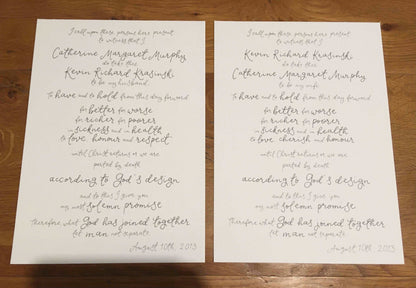 I call upon these persons here present
to witness that I
Catherine Margaret Murphy
do take thee
Kevin Richard Krasinski
to be my husband
To have and to hold from this day forward
for better for worse
for richer for poorer
in sickness and in health
to love, honour and respect
until Christ returns or we are
parted by death
according to God's design
and to this I give you
my most solemn promise
Therefore what God has joined together
let man not separate.
August 10th, 2013
I call upon these persons here present
to witness that I
Kevin Richard Krasinski
do take thee
Catherine Margaret Murphy
to be my wife
To have and to hold from this day forward
for better for worse
for richer for poorer
in sickness and in health
to love cherish and honour
until Christ returns or we are
parted by death
according to God's design
and to this I give you
my most solemn promise
Therefore what God has joined together
let man not separate.
August 10th, 2013